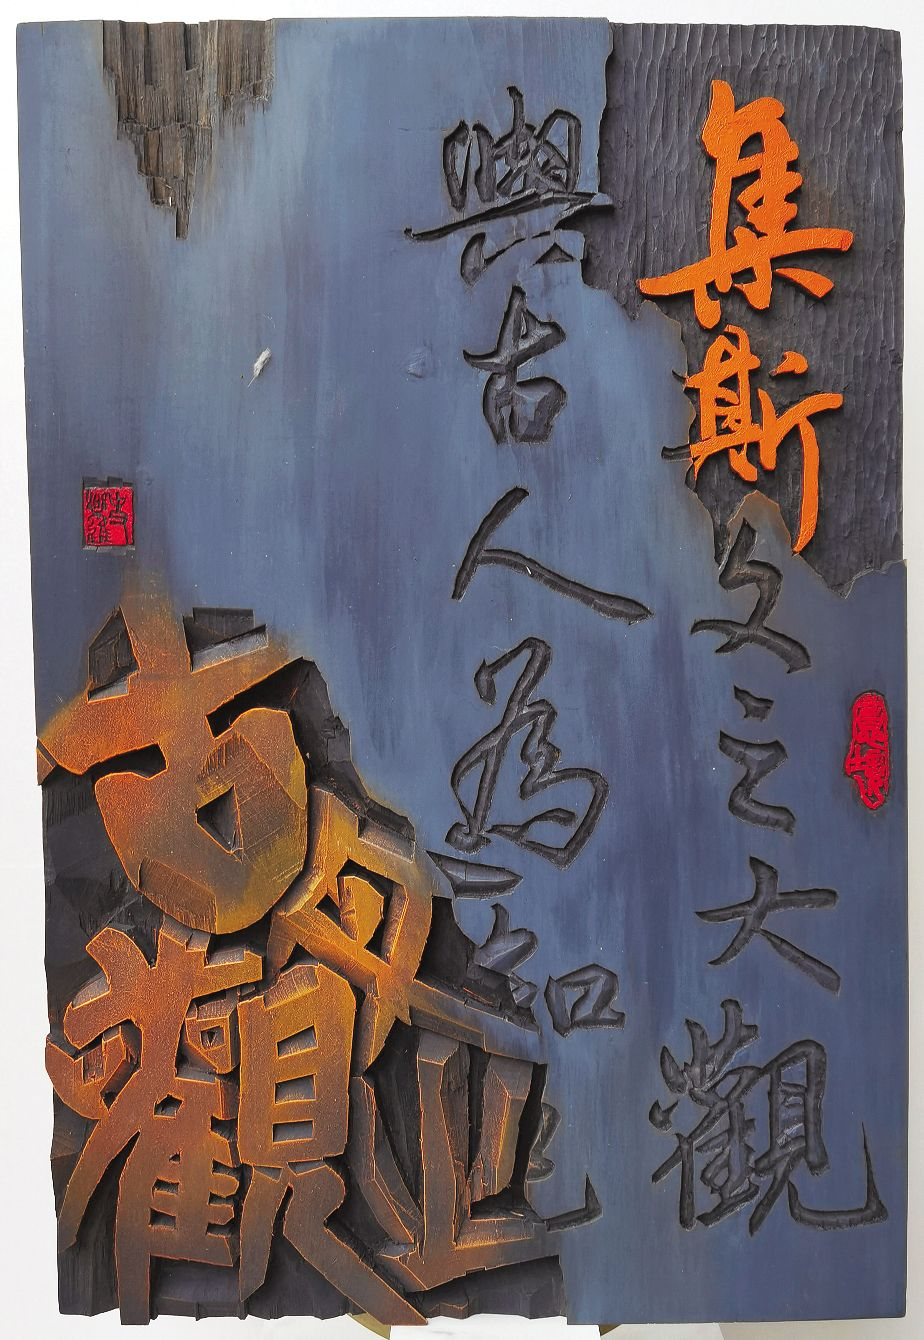 集斯文之大觀
與古人為知己
古文觀止